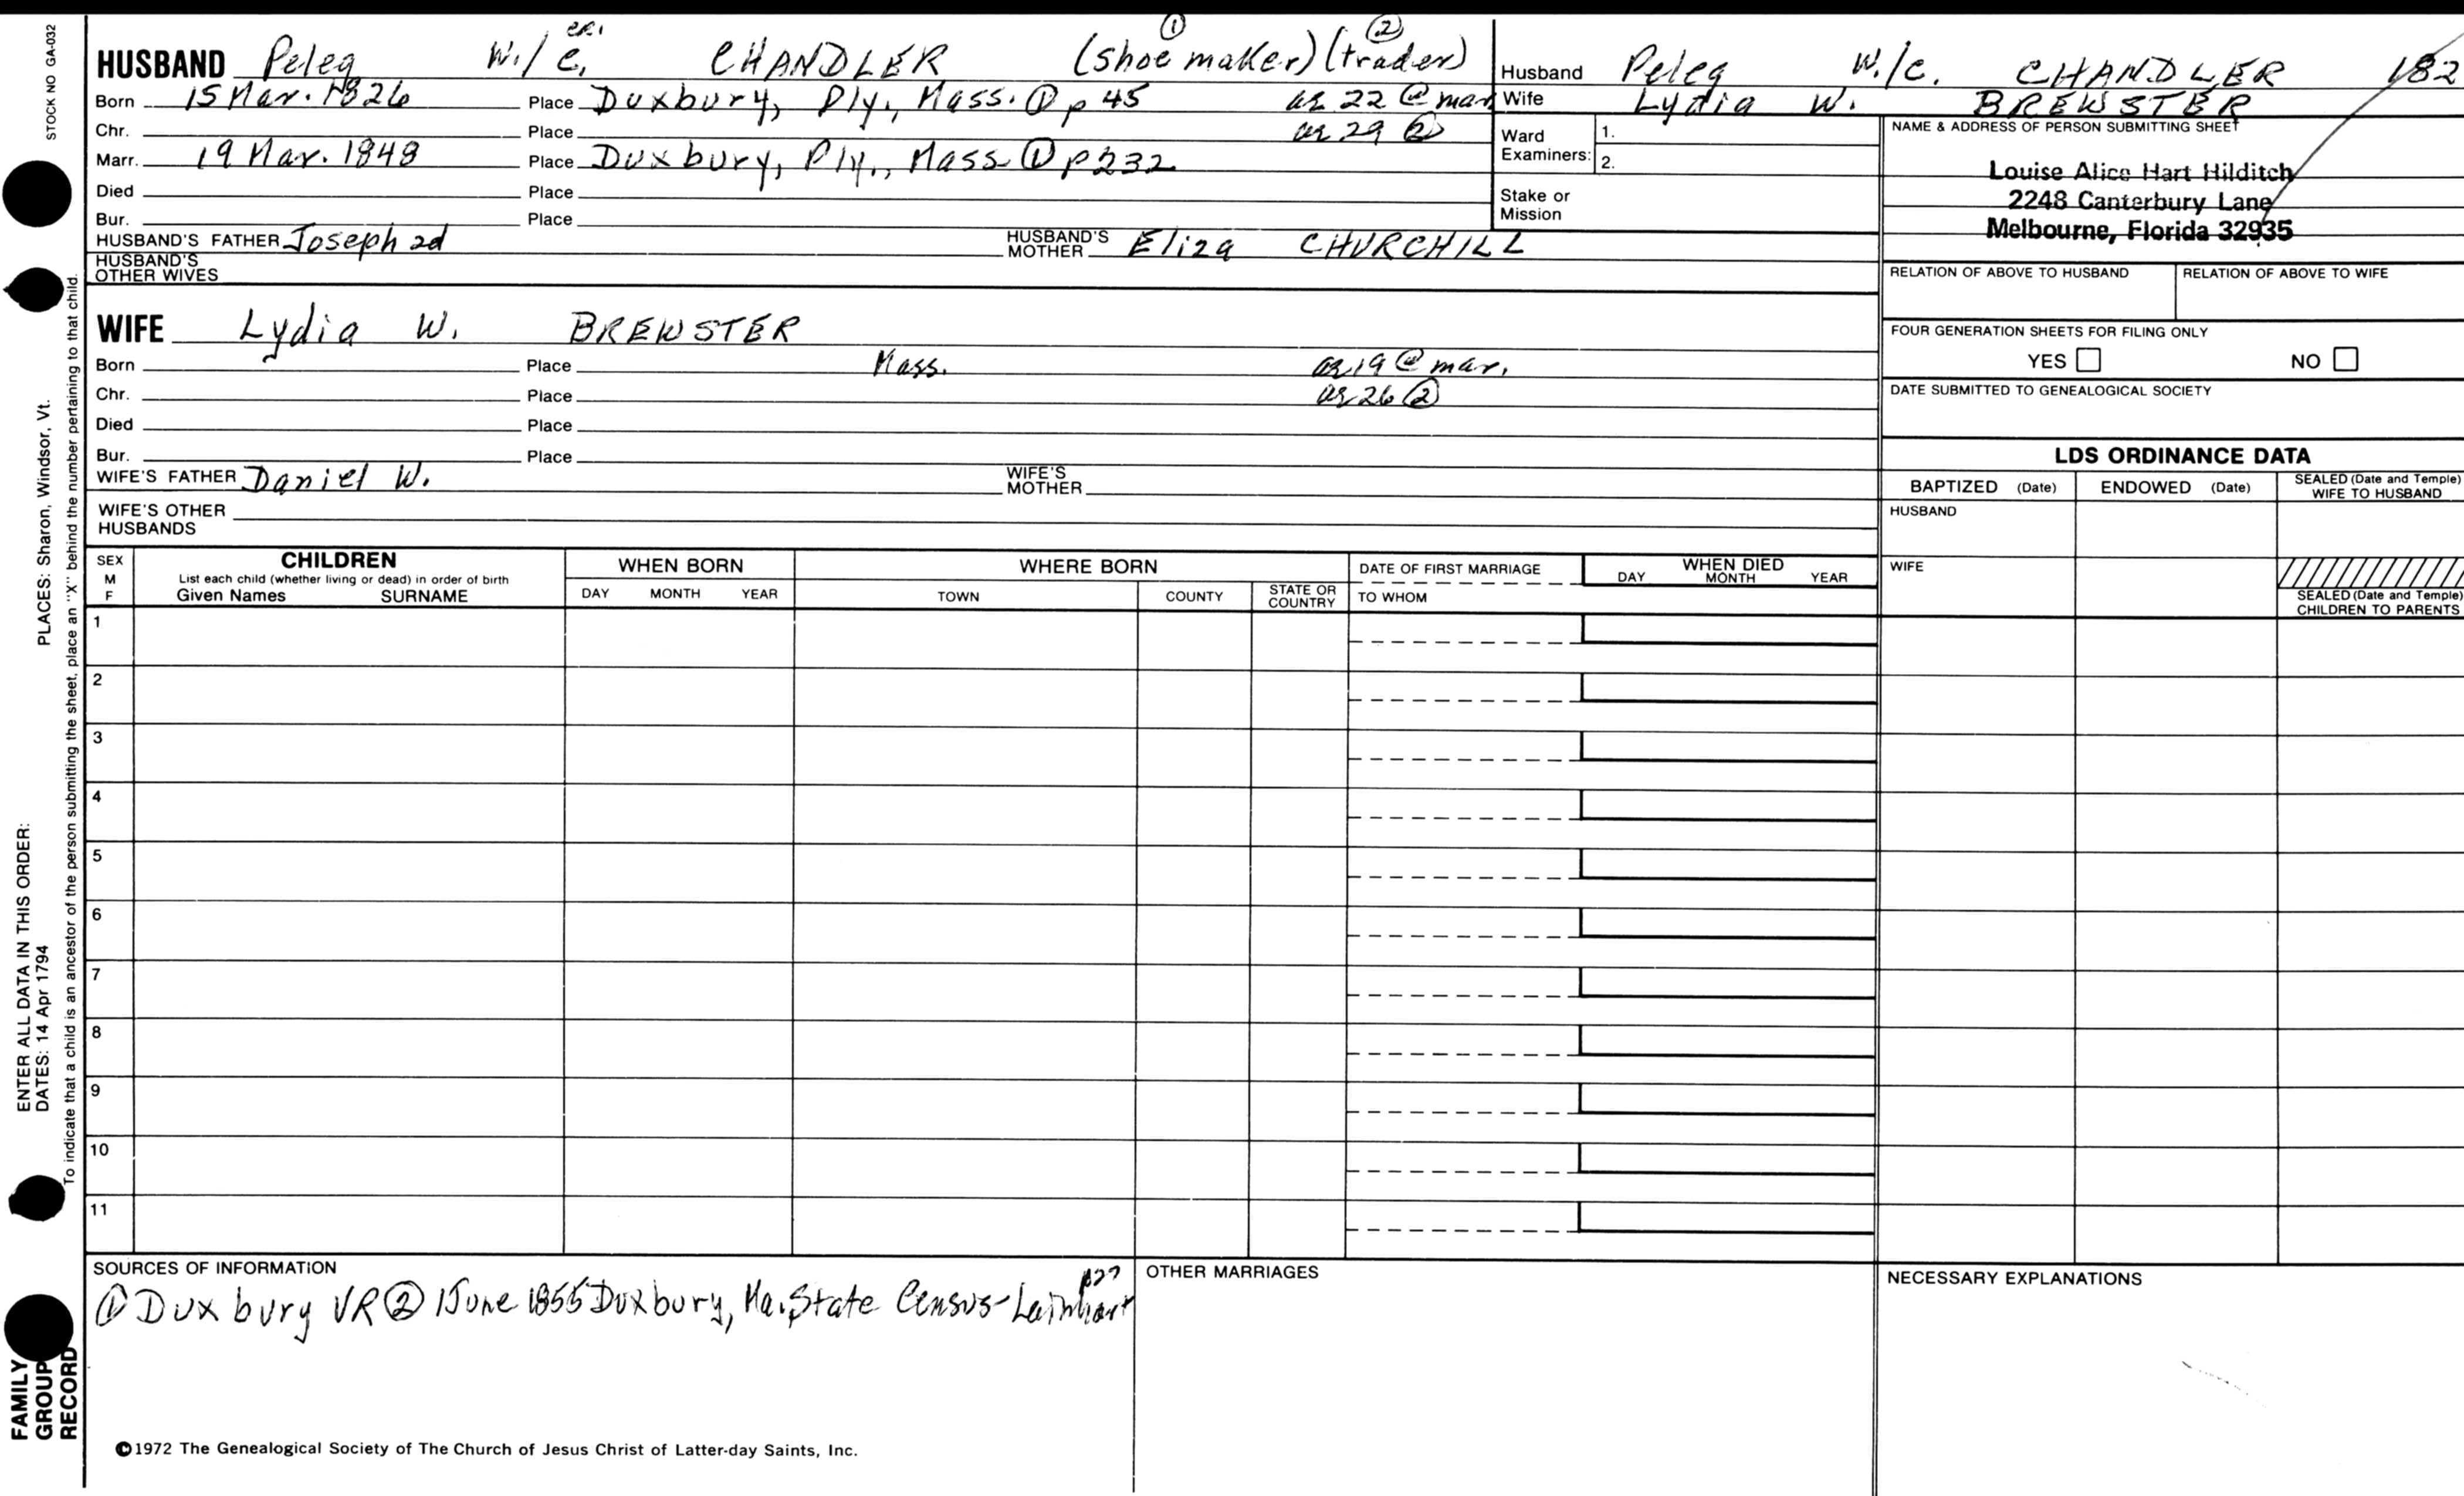 STOCK NO GA-032
HUSBAND Peleg W./C. CHANDLER (shoe maker) (trader)
cen. ① ②
Born 15 Mar. 1826 Place Duxbury, Ply., Mass. ① p 45 ae 22 @ mar
Chr. Place ae 29 ②
Marr. 19 Mar. 1848 Place Duxbury, Ply., Mass. ① p 232
Died Place
Bur. Place
HUSBAND'S FATHER Joseph 2d HUSBAND'S MOTHER Eliza CHURCHILL
HUSBAND'S OTHER WIVES
Husband Peleg W./C. CHANDLER 182
Wife Lydia W. BREWSTER
Ward Examiners: 1.
2.
Stake or Mission
NAME & ADDRESS OF PERSON SUBMITTING SHEET
Louise Alice Hart Hilditch
2248 Canterbury Lane
Melbourne, Florida 32935
RELATION OF ABOVE TO HUSBAND RELATION OF ABOVE TO WIFE
FOUR GENERATION SHEETS FOR FILING ONLY
YES NO
DATE SUBMITTED TO GENEALOGICAL SOCIETY
WIFE Lydia W. BREWSTER
Born Place Mass. ae 19 @ mar.
Chr. Place ae 26 ②
Died Place
Bur. Place
WIFE'S FATHER Daniel W. WIFE'S MOTHER
WIFE'S OTHER HUSBANDS
LDS ORDINANCE DATA
BAPTIZED (Date) ENDOWED (Date) SEALED (Date and Temple) WIFE TO HUSBAND
HUSBAND
WIFE
SEALED (Date and Temple) CHILDREN TO PARENTS
SEX M F
CHILDREN
List each child (whether living or dead) in order of birth
Given Names SURNAME
WHEN BORN
DAY MONTH YEAR
WHERE BORN
TOWN COUNTY STATE OR COUNTRY
DATE OF FIRST MARRIAGE
TO WHOM
WHEN DIED
DAY MONTH YEAR
1
2
3
4
5
6
7
8
9
10
11
SOURCES OF INFORMATION
① Duxbury VR ② 1 June 1855 Duxbury, Ma. State Census - Lainhart p27
OTHER MARRIAGES
NECESSARY EXPLANATIONS
©1972 The Genealogical Society of The Church of Jesus Christ of Latter-day Saints, Inc.
PLACES: Sharon, Windsor, Vt.
ENTER ALL DATA IN THIS ORDER:
DATES: 14 Apr 1794
To indicate that a child is an ancestor of the person submitting the sheet, place an "X" behind the number pertaining to that child.
FAMILY
GROUP
RECORD